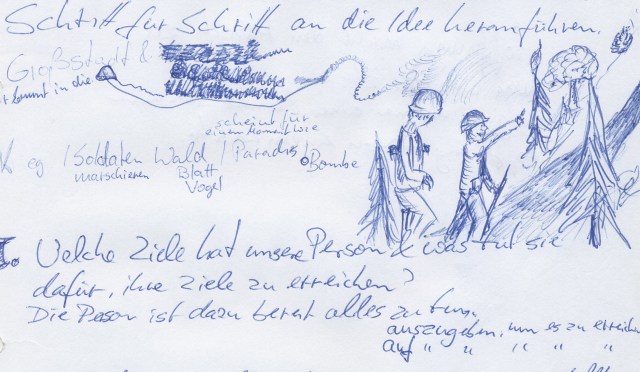 Schritt für Schritt an die Idee heranführen.
Großstadt &
kommt in die
scheint für
einen Moment wie
eg / Soldaten Wald / Paradies Bombe
marschieren Blatt
Vogel
I. Welche Ziele hat unsere Person & was tut sie
dafür, ihre Ziele zu erreichen?
Die Person ist dazu bereit alles zu tun,
auszugeben, um es zu erreichen
auf " " " " "